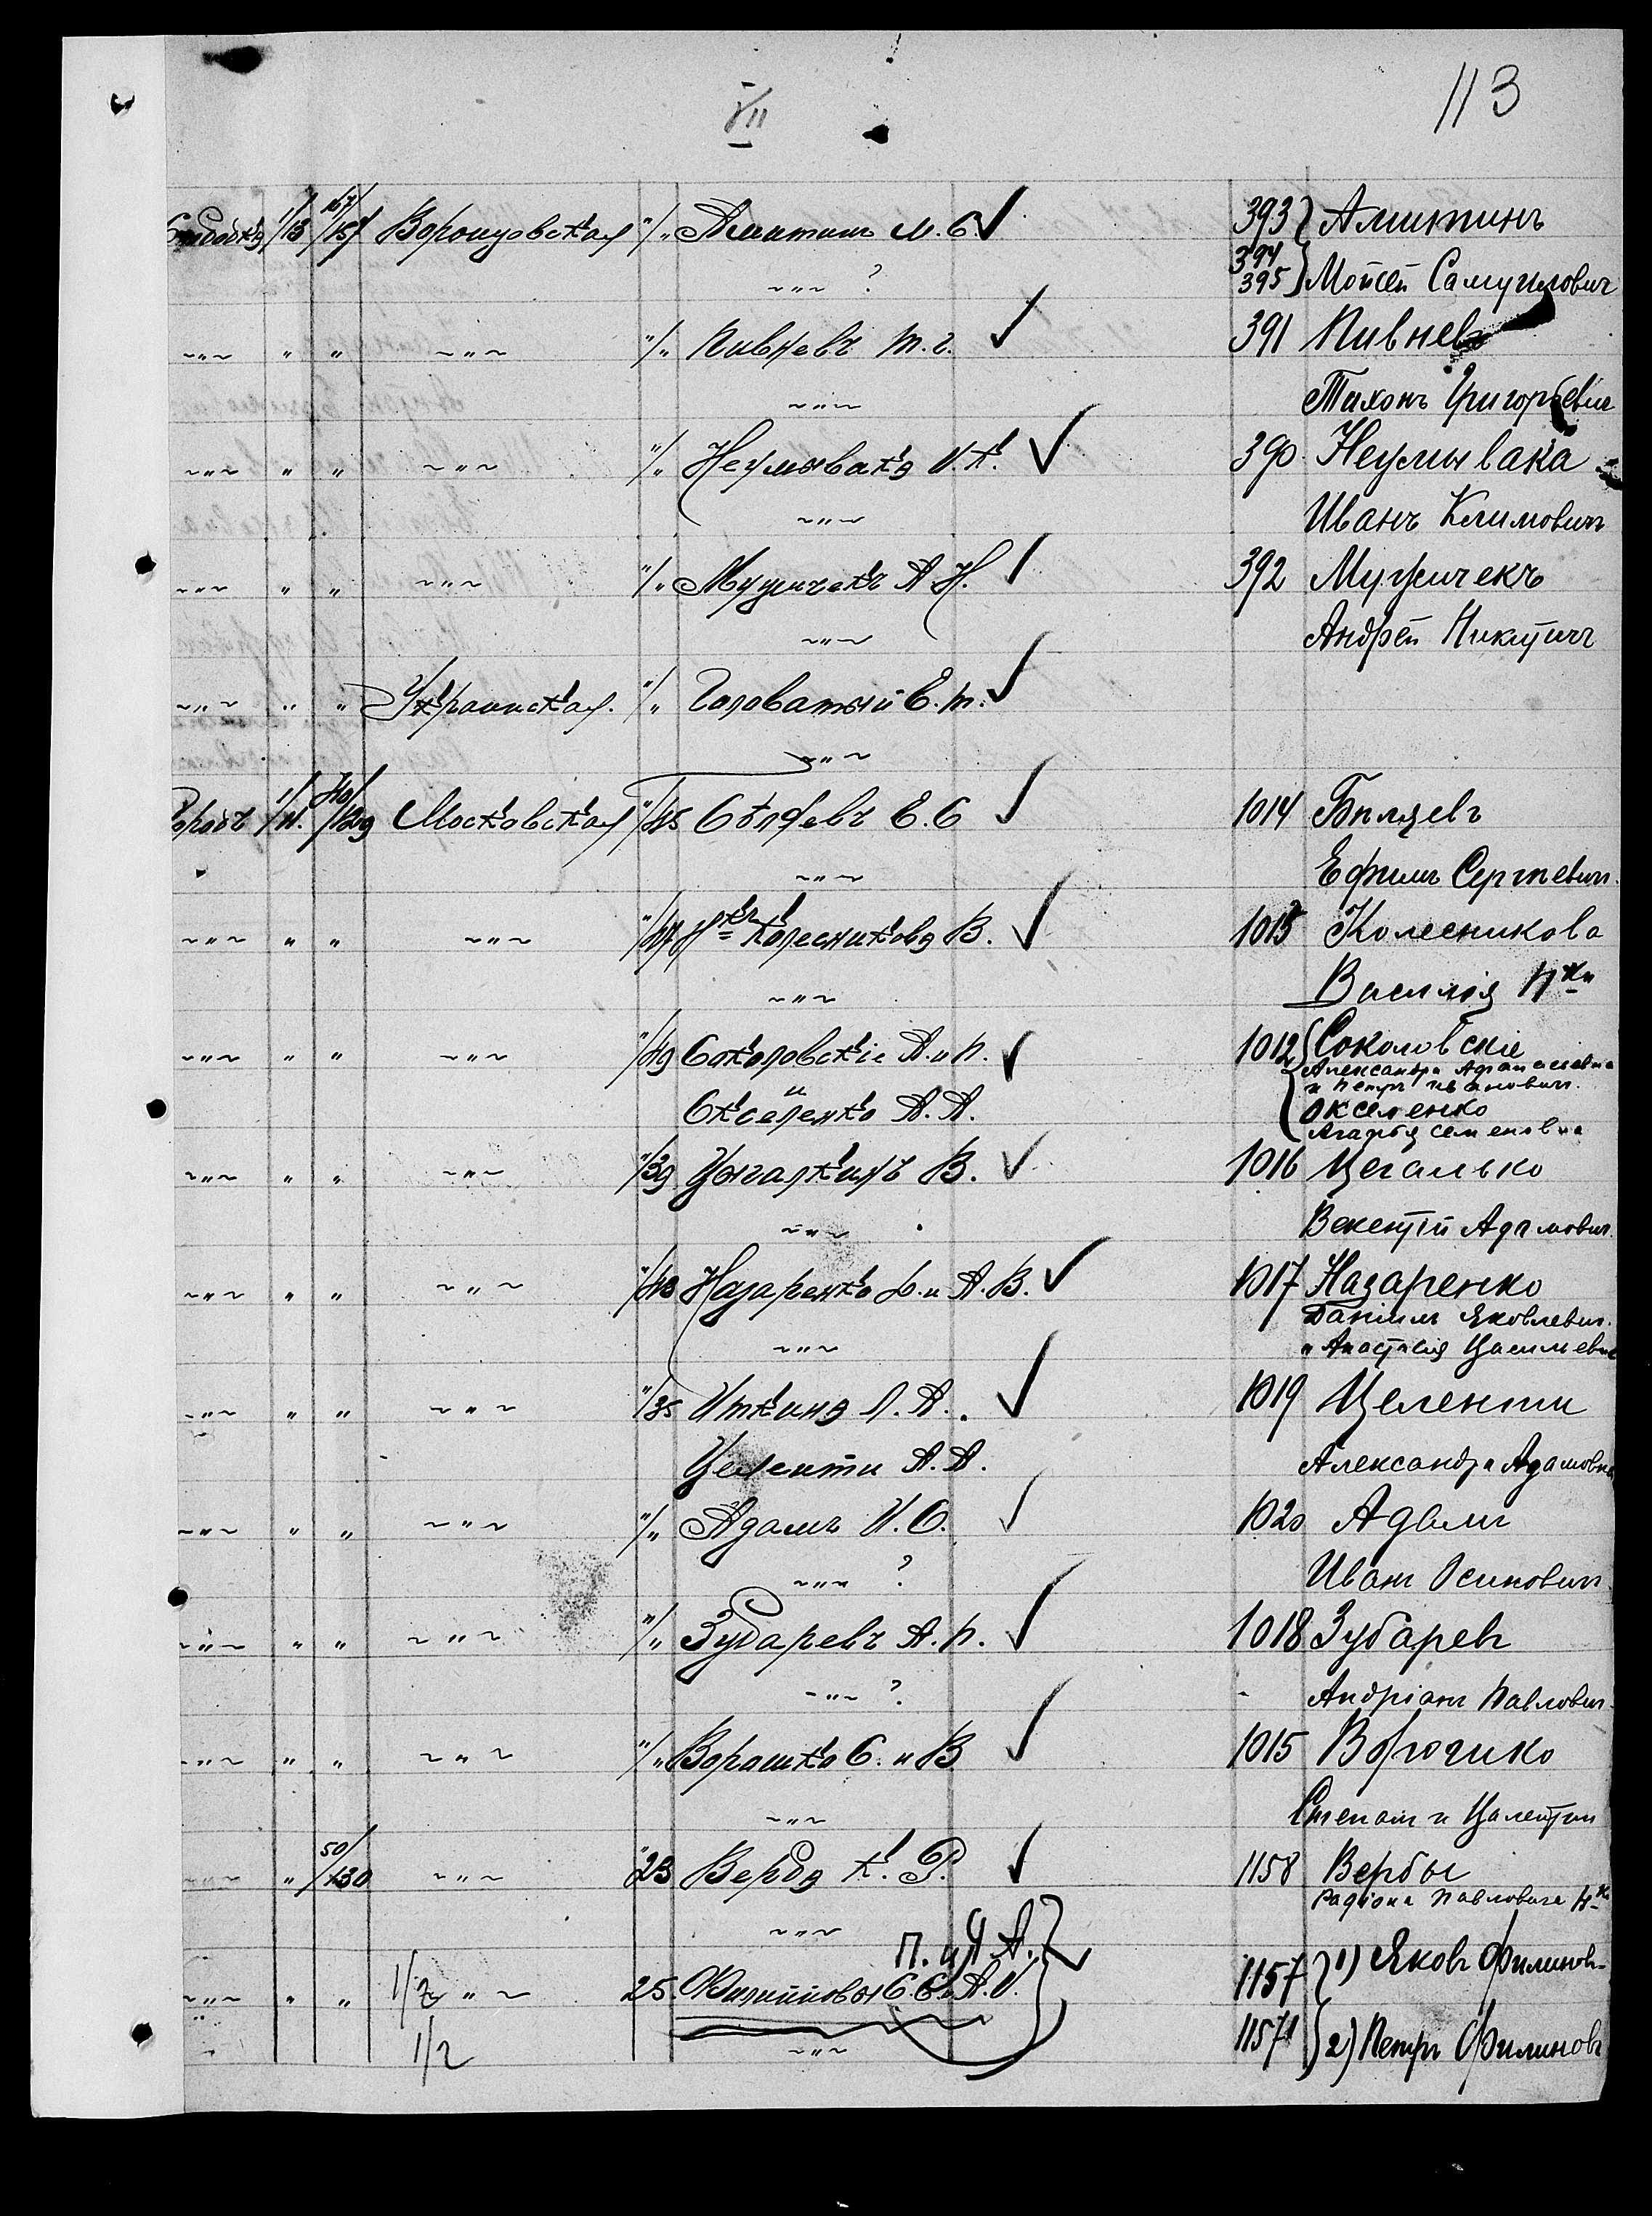 VII
113
Слободка 1/13 167/157 Воронцовская "/" Амитинъ М. С. 393 } Амитинъ
~"~ ? 394 395 } Мойсей Самуиловичъ
~"~ " " ~"~ "/" Пивневъ Т. Г. 391 Пивневъ
~"~ Тихонъ Григорьевич
~"~ " " ~"~ "/" Неумывака И. К. 390 Неумывака
~"~ Иванъ Климовичъ
~"~ " " ~"~ "/" Мужичекъ А Н. 392 Мужичекъ
~"~ Андрей Никитичъ
~"~ " " Украинская. "/" Головатый Е. Т.
~"~
Городъ 1/11. 40/129 Московская "/45 Бѣляевъ Е. С 1014 Бѣляевъ
~"~ Ефимъ Сергѣевич.
~"~ " " ~"~ "/47 Н-ки Колесникова В. 1013 Колесникова
~"~ Василія Н-ки
~"~ " " ~"~ "/49 Соколовскіе А. и П. 1012 { Соколовскіе
Александра Афанасьевна
и Петръ Ивановичъ.
и Оксененко А. А. Оксененко
Агафья Семеновна
~"~ " " ~"~ "/39 Цыгалкинъ В. 1016 Цегалько
~"~ Викентій Адамович.
~"~ " " ~"~ "/43 Назаренко Д. и А. В. 1017 Назаренко
Даніилъ Яковлевич.
~"~ и Анастасія Васильевна
~"~ " " ~"~ "/35 Иткина Л. А. 1019 Целенти
Целенти А. А. Александра Адамовна
~"~ " " ~"~ "/" Адамъ И. О. 1020 Адамъ
~"~ ? Иванъ Осиповичъ
~"~ " " ~"~ "/" Зубаревъ А. П. 1018 Зубаревъ
~"~ ? Андріанъ Павлович.
~"~ " " ~"~ "/" Ворошко С. и В 1015 Ворошко
~"~ Степанъ и Валентин
~"~ " 50/130 ~"~ "23 Верба К. Р. 1158 Вербы
Радіона Павловича Н-ки
~"~ П. и Я А. }
~"~ " " 1/2 " ~ 25. Филиповы С. Е. и А. И. 1157 } 1) Яковъ Филиповъ
1/2 ~"~ 1157¹ } 2) Петръ Филиповъ